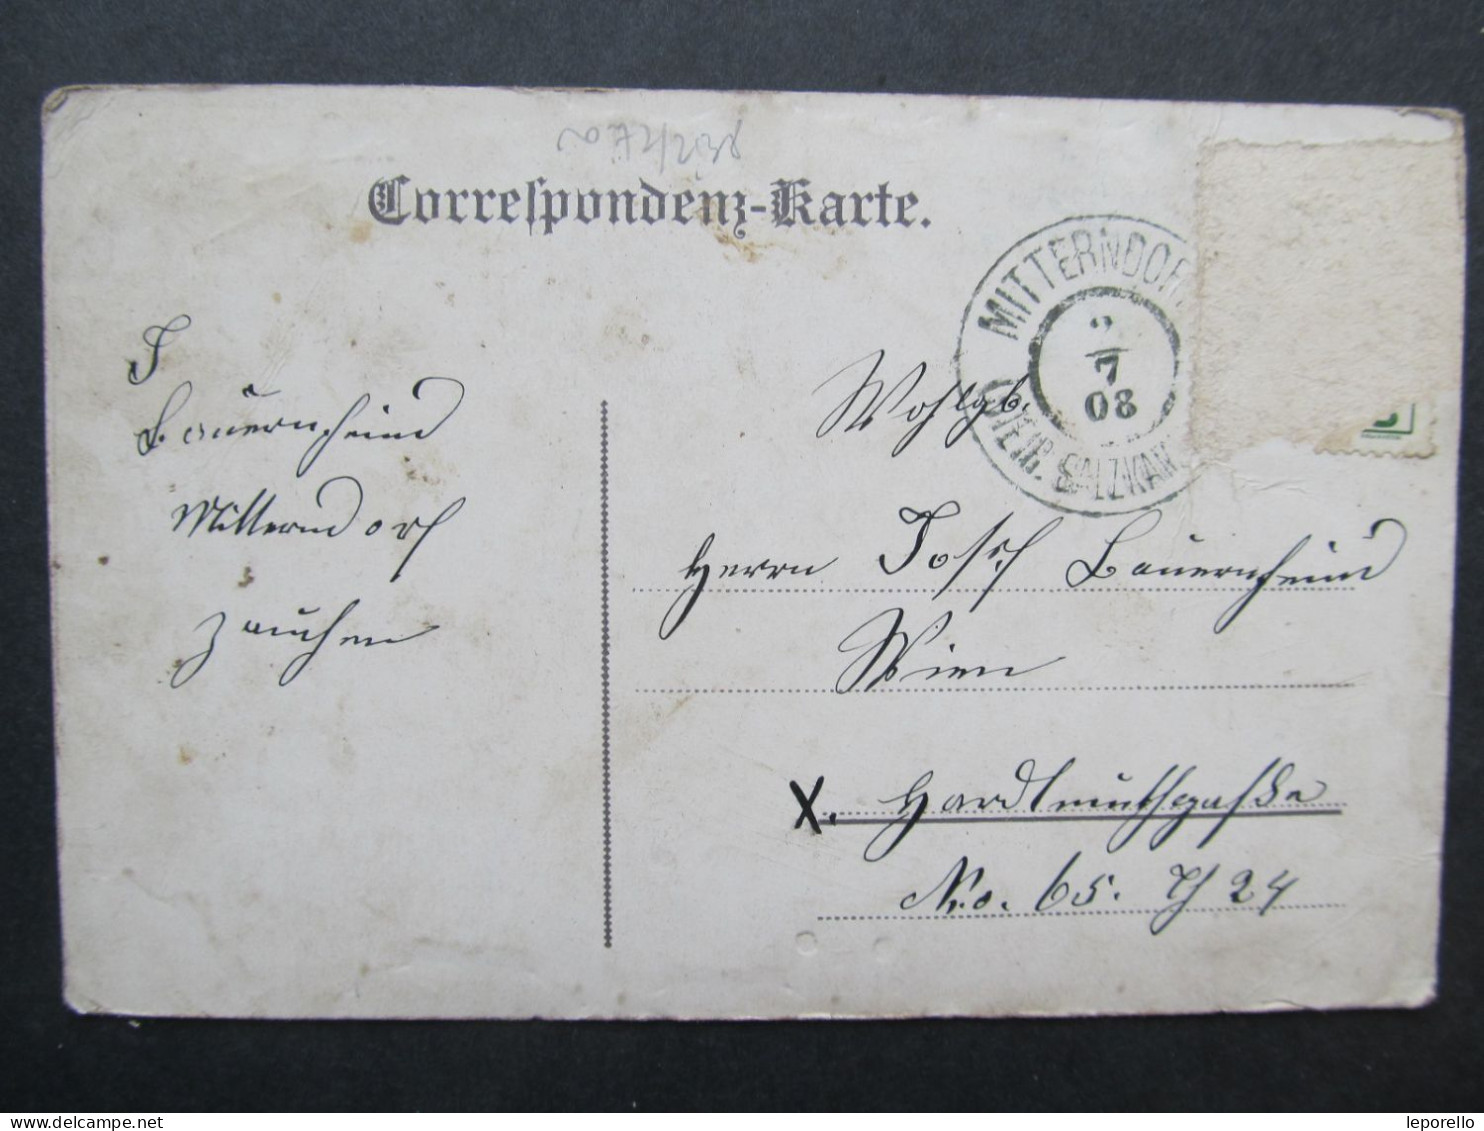 Correspondenz-Karte.
MITTERNDORF
2/7
08
SALZKAM
J
Bauernheim
Mitterndorf
Zauchen
Wohlgb.
Herrn Josef Bauernheim
Wien
X. Hardtmuthgasse
No. 65. 24
www.delcampe.net
leporello